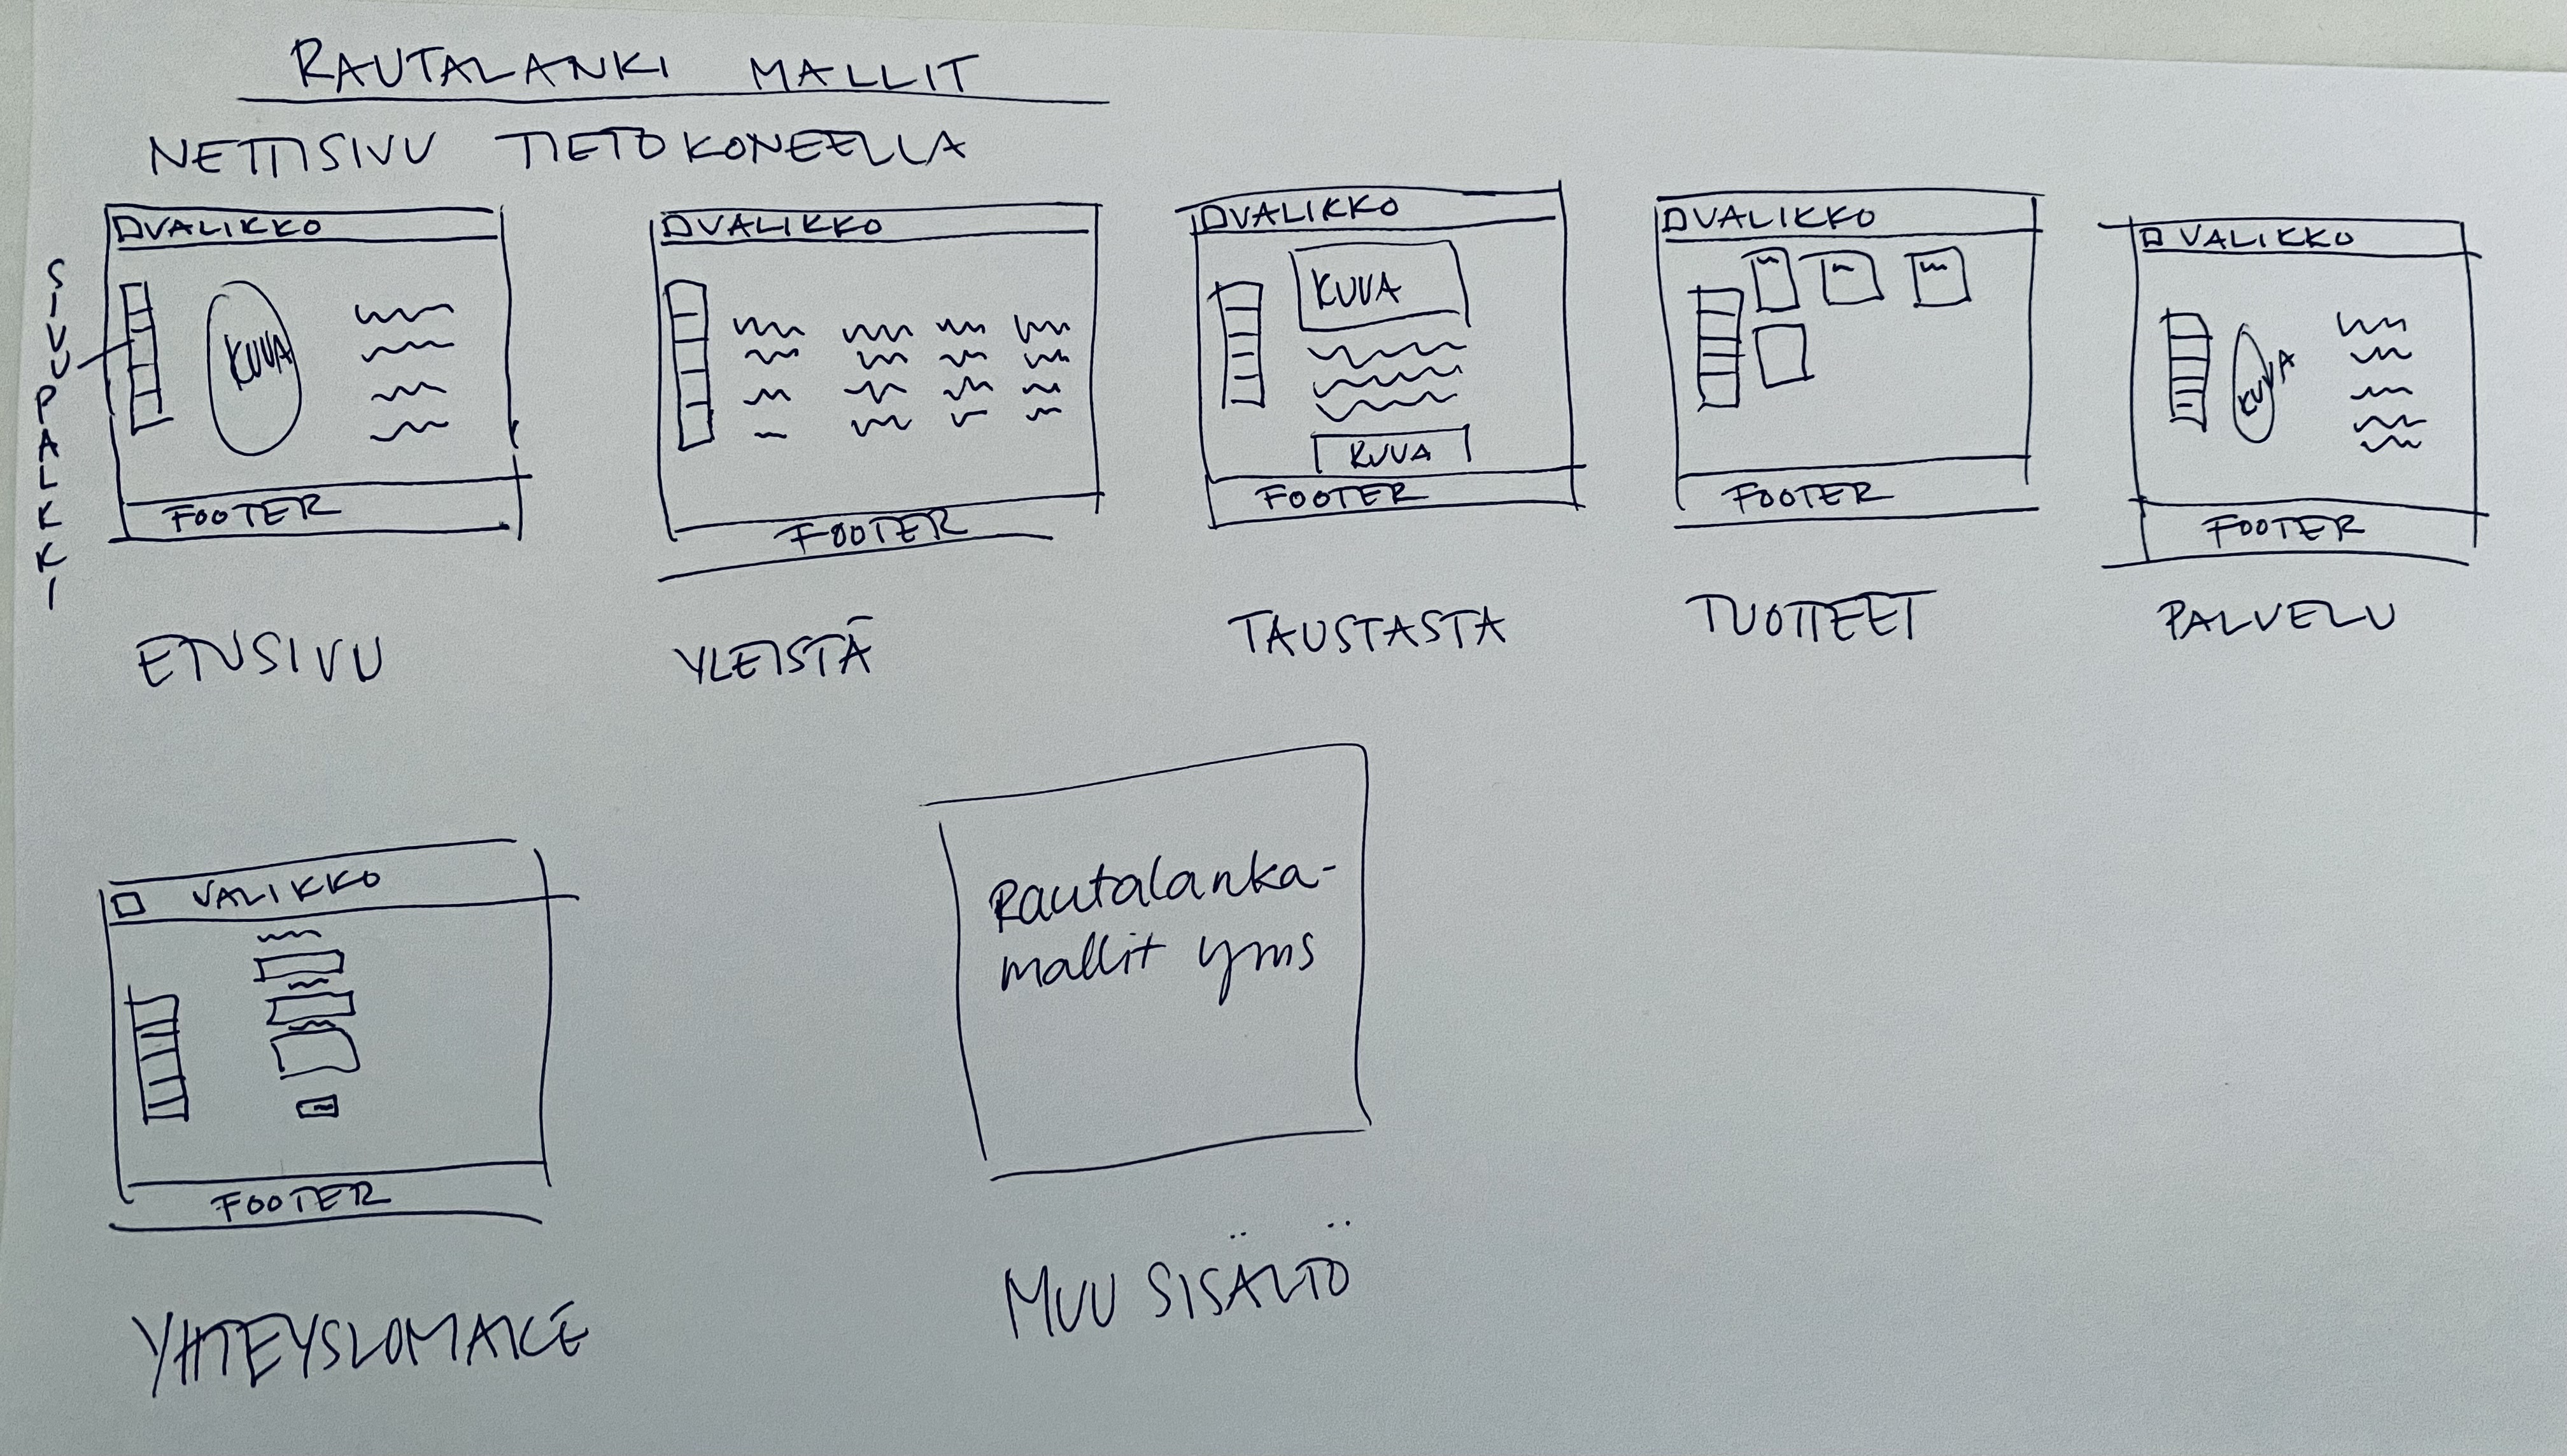 RAUTALANKI MALLIT
NETTISIVU TIETOKONEELLA
SIVUPALKKI
VALIKKO
KUVA
FOOTER
ETUSIVU
VALIKKO
FOOTER
YLEISTÄ
VALIKKO
KUVA
KUVA
FOOTER
TAUSTASTA
VALIKKO
FOOTER
TUOTTEET
VALIKKO
KUVA
FOOTER
PALVELU
VALIKKO
FOOTER
YHTEYSLOMAKE
Rautalanka-
mallit yms
MUU SISÄLTÖ